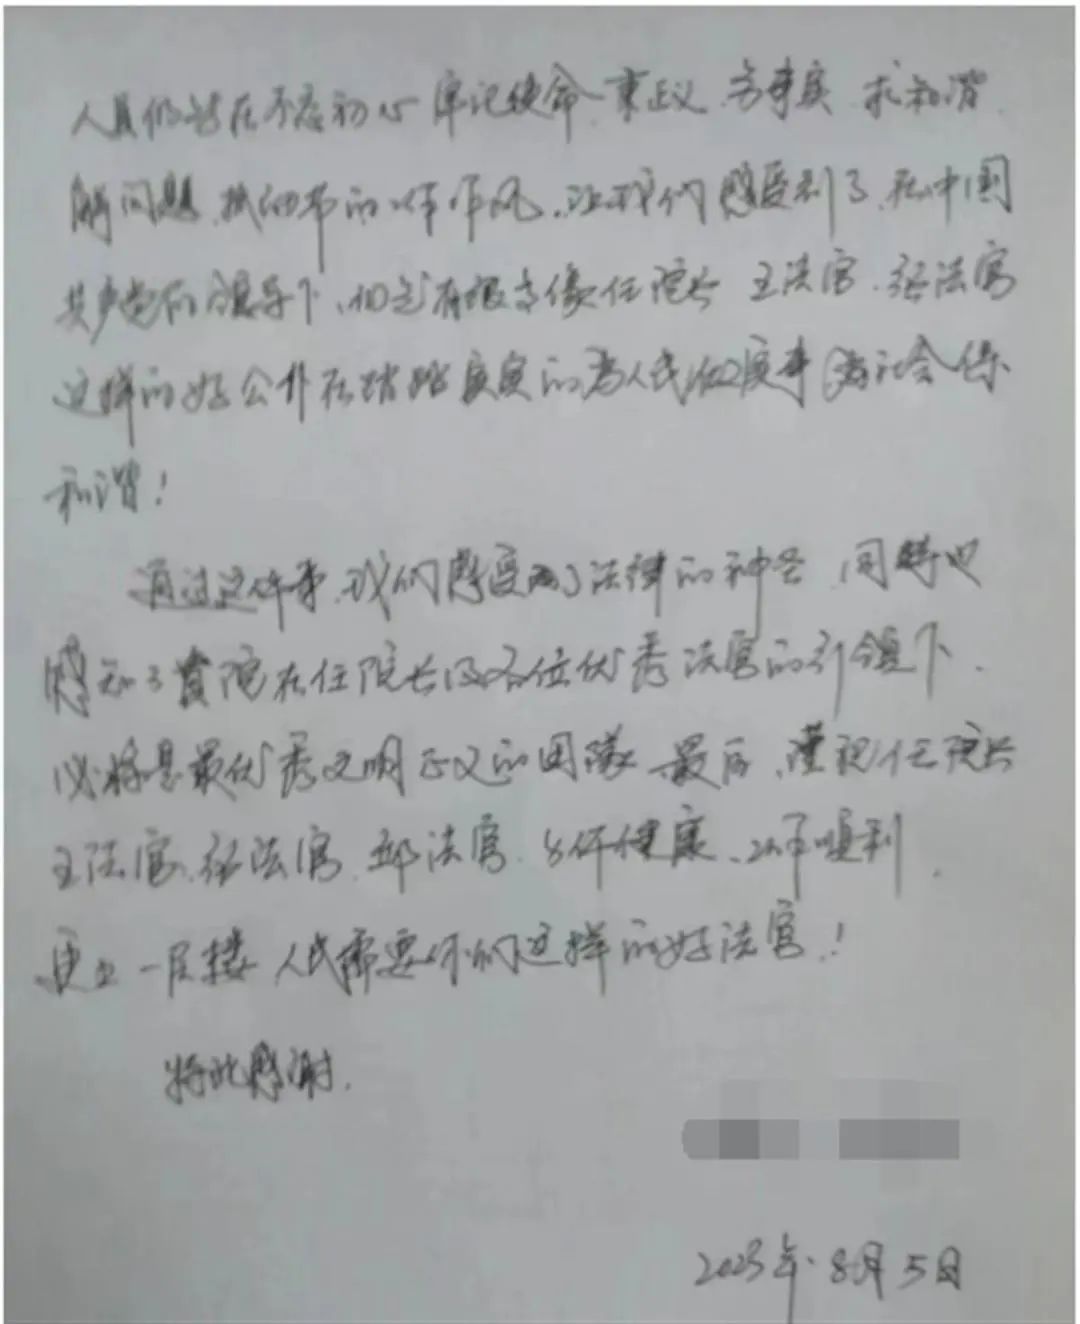 人员们皆在不忘初心 牢记使命、秉正义、务事实、求和谐、
解问题、抓细节的工作作风、让我们感受到了、在中国
共产党的领导下、仍然有很多像任院长 王法官、张法官
这样的好公仆在踏踏实实的为人民做实事 为社会保
和谐！
通过这件事、我们感受到了法律的神圣、同时也
感知了贵院在任院长及各位优秀法官的引领下、
必将是最优秀文明正义的团队 最后、谨祝任院长
王法官、张法官、邱法官、身体健康、工作顺利、
更上一层楼 人民需要你们这样的好法官！
特此感谢、
2023年8月5日